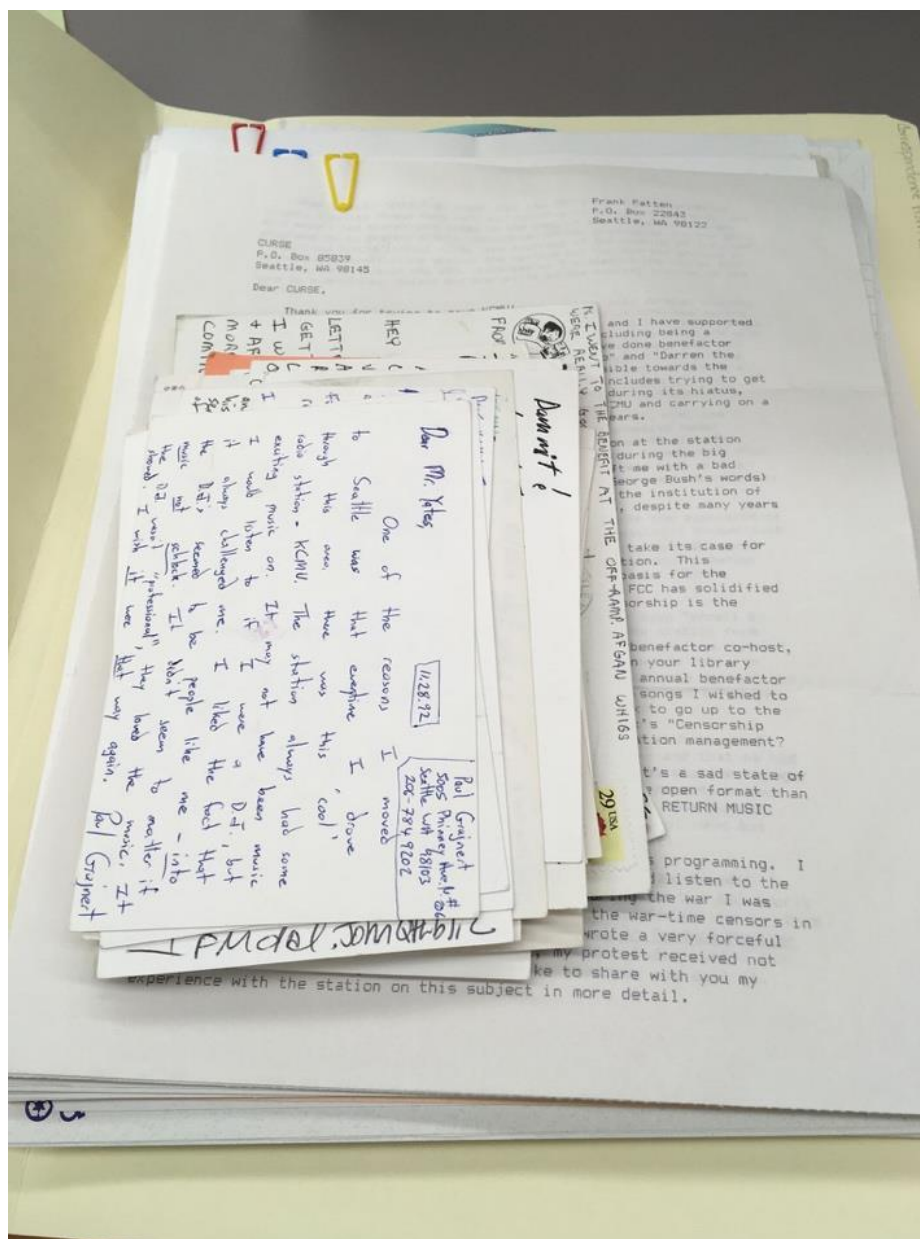 Frank Patten
P.O. Box 22843
Seattle, WA 98122
CURSE
P.O. Box 85039
Seattle, WA 98145
Dear CURSE,
Thank you for
and I have supported
cluding being a
ve done benefactor
and "Darren the
ible towards the
includes trying to get
during its hiatus,
CMU and carrying on a
ears.
on at the station
during the big
ft me with a bad
George Bush's words)
the institution of
, despite many years
take its case for
tion. This
basis for the
FCC has solidified
orship is the
benefactor co-host,
n your library
annual benefactor
songs I wished to
to go up to the
's "Censorship
tion management?
t's a sad state of
open format than
RETURN MUSIC
s programming. I
d listen to the
ing the war I was
the war-time censors in
wrote a very forceful
, my protest received not
ke to share with you my
experience with the station on this subject in more detail.
I WENT TO THE BENEFIT AT THE OFF-RAMP. AFGAN WHIGS
WERE REALLY
HEY
GET
I W
MORE
29 USA
Dammit!
11.28.92
Paul Grajnert
5005 Phinney Ave. N. #206
Seattle WA 98103
206-784 9202
Dear Mr. Yates,
One of the reasons I moved
to Seattle was that everytime I drove
through this area, there was this "cool"
radio station - KCMU. The station always had some
exciting music on. It may not have been music
I would listen to if I were a D.J., but
it always challenged me. I liked the fact that
the D.J.s seemed to be people like me - into
music not schlock. It didn't seem to matter if
the D.J. wasn't "professional", they loved the music. It
showed. I wish it were that way again.
Paul Grajnert